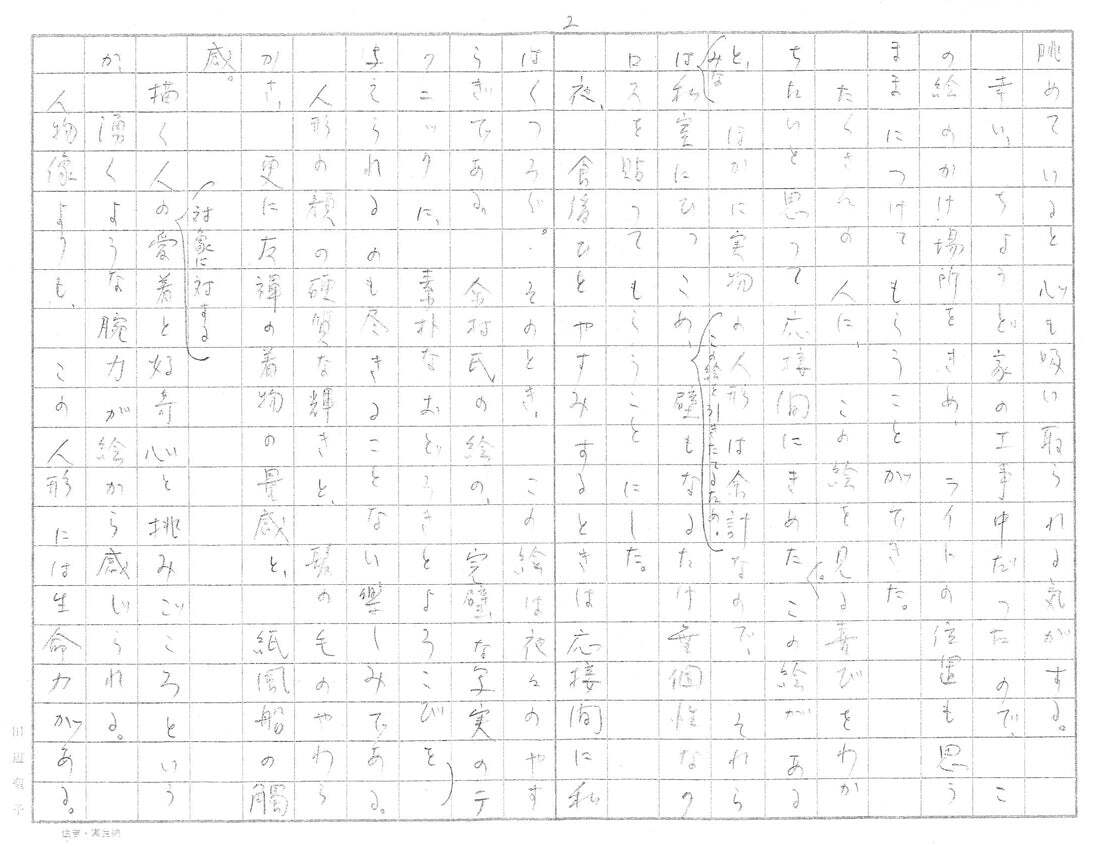 2
眺めていると心も吸い取られる気がする。
幸い、ちょうど家の工事中だったので、こ
の絵のかけ場所をきめ、ライトの位置も思う
ままにつけてもらうことができた。
たくさんの人に、この絵を見る喜びをわか
ちたいと思って応接間にきめた。この絵がある
と、ほかに実物の人形は余計なので、それら
みな
は私室にひっこめ、壁もなるたけ無個性なク
この絵を引きたてるため、
ロスを貼ってもらうことにした。
夜、食後ひとやすみするときは応接間に私
はくつろぐ。そのとき、この絵は夜々のやす
らぎである。余村氏の絵の、完璧な写実のテ
クニックに、素朴なおどろきとよろこびを
与えられるのも尽きることない楽しみである。
人形の顔の硬質な輝きと、髪の毛のやわら
かさ、更に友禅の着物の量感と、紙風船の触
感。
対象に対する
描く人の愛着と好奇心と挑みごころという
か、湧くような腕力が絵から感じられる。
人物像よりも、この人形には生命力がある。
田辺聖子